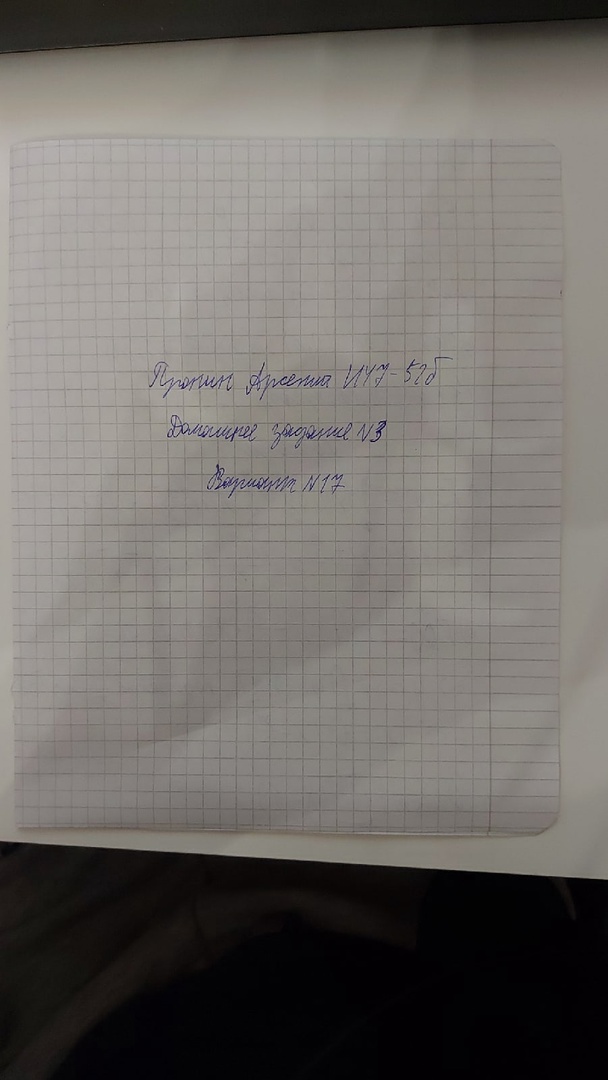 Пронин Арсений ИУ7-52б
Домашнее задание №3
Вариант №17